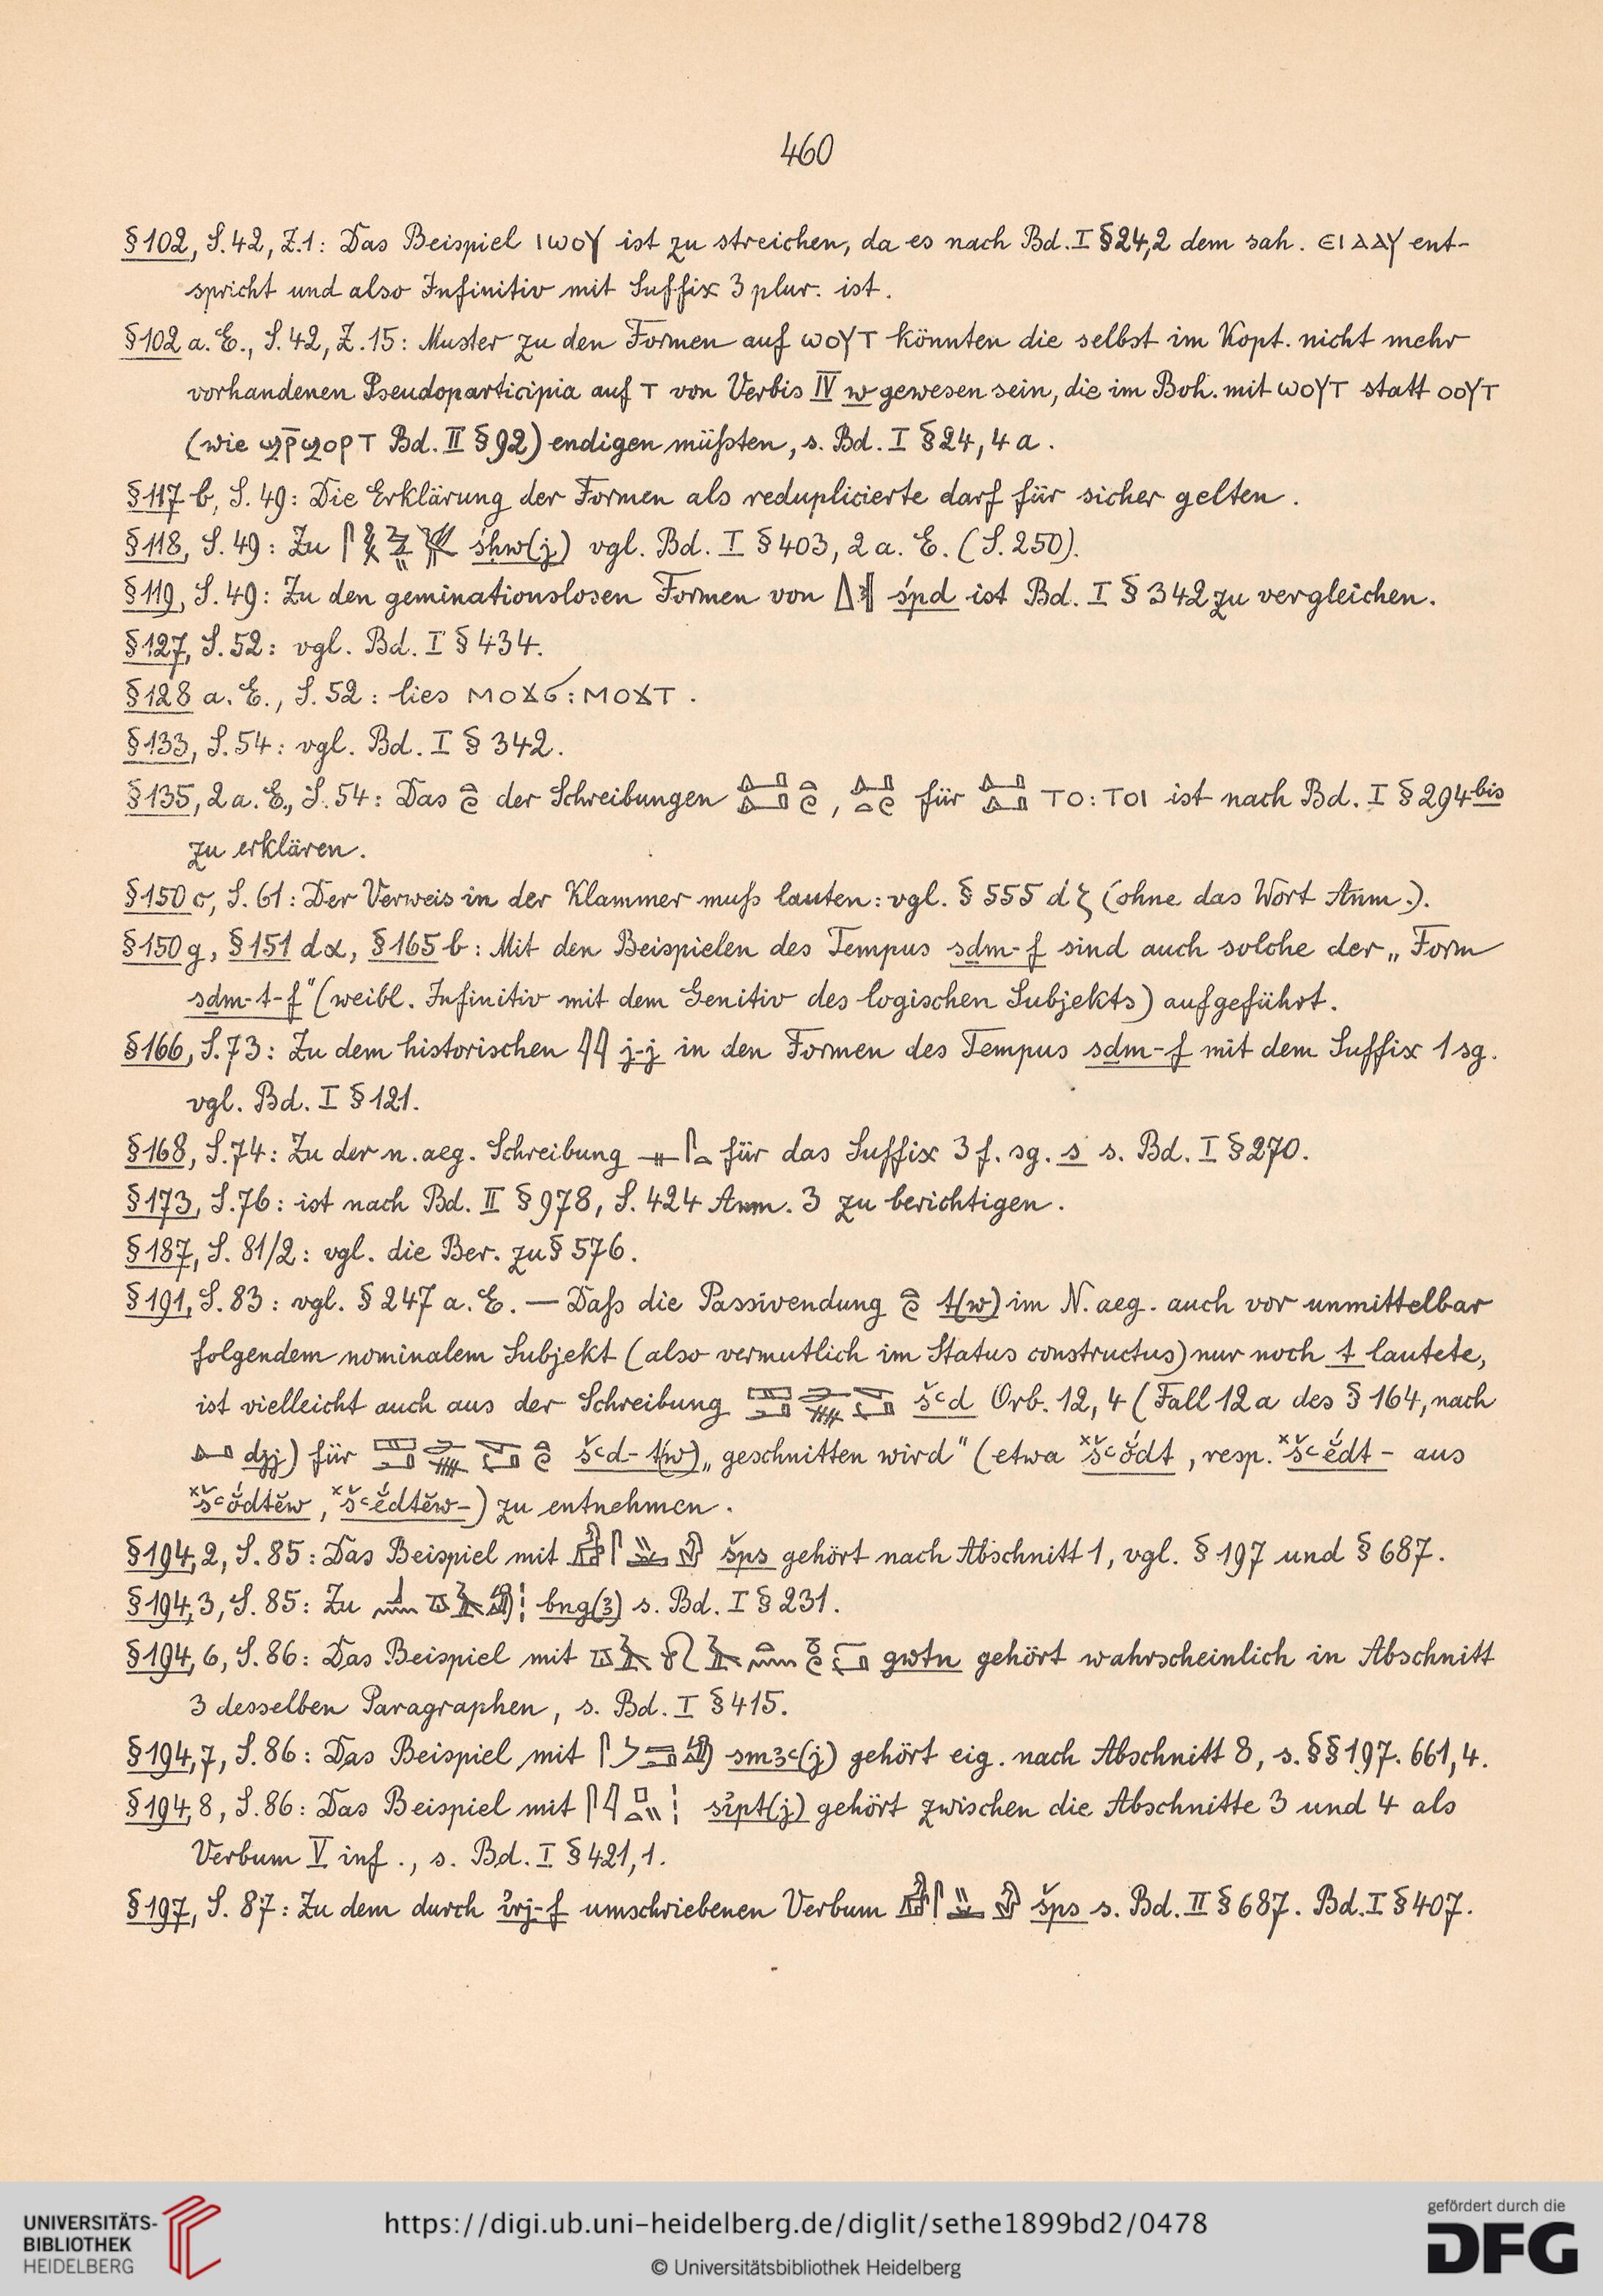 460
§102, S.42, Z.1: Das Beispiel ⲓⲱⲟⲩ ist zu streichen, da es nach Bd. I §24,2 dem sah. ⲉⲓⲁⲁⲩ ent-
spricht und also Infinitiv mit Suffix 3 plur. ist.
§102 a. E., S.42, Z.15: Muster zu den Formen auf ⲱⲟⲩⲧ könnten die selbst im Kopt. nicht mehr
vorhandenen Pseudoparticipia auf ⲧ von Verbis IV w gewesen sein, die im Boh. mit ⲱⲟⲩⲧ statt ⲟⲟⲩⲧ
(wie ϣⲣ̄ϣⲟⲣⲧ Bd. II §92) endigen müßten, s. Bd. I §24, 4 a.
§117 b, S. 49: Die Erklärung der Formen als reduplicierte darf für sicher gelten.
§118, S. 49: Zu śḥw(j) vgl. Bd. I §403, 2 a. E. (S. 250).
§119, S. 49: Zu den geminationslosen Formen von śpd ist Bd. I §342 zu vergleichen.
§127, S. 52: vgl. Bd. I §434.
§128 a. E., S. 52: lies ⲙⲟϫϭ: ⲙⲟϫⲧ.
§133, S. 54: vgl. Bd. I §342.
§135, 2 a. E., S. 54: Das der Schreibungen , für ⲧⲟ: ⲧⲟⲓ ist nach Bd. I §294bis
zu erklären.
§150 c, S. 61: Der Verweis in der Klammer muß lauten: vgl. §555 d ζ (ohne das Wort Anm.).
§150 g, §151 dα, §165 b: Mit den Beispielen des Tempus sḏm-f sind auch solche der „Form
sḏm-t-f" (weibl. Infinitiv mit dem Genitiv des logischen Subjekts) aufgeführt.
§166, S. 73: Zu dem historischen 𓇋𓇋 j-j in den Formen des Tempus sḏm-f mit dem Suffix 1 sg.
vgl. Bd. I §121.
§168, S. 74: Zu der n. aeg. Schreibung 𓊃𓋴𓏏 für das Suffix 3 f. sg. s s. Bd. I §270.
§173, S. 76: ist nach Bd. II §978, S. 424 Anm. 3 zu berichtigen.
§187, S. 81/2: vgl. die Ber. zu §576.
§191, S. 83: vgl. §247 a. E. — Daß die Passivendung t(w) im N. aeg. auch vor unmittelbar
folgendem nominalem Subjekt (also vermutlich im Status constructus) nur noch t lautete,
ist vielleicht auch aus der Schreibung šꜥd Orb. 12, 4 (Fall 12 a des §164, nach
djj) für šꜥd-t(w) „geschnitten wird" (etwa ˣšꜥŏ́dt, resp. ˣšꜥĕ́dt- aus
ˣšꜥŏ́dtĕw, ˣšꜥĕ́dtĕw-) zu entnehmen.
§194, 2, S. 85: Das Beispiel mit šps gehört nach Abschnitt 1, vgl. §197 und §687.
§194, 3, S. 85: Zu bng(ꜣ) s. Bd. I §231.
§194, 6, S. 86: Das Beispiel mit gwtn gehört wahrscheinlich in Abschnitt
3 desselben Paragraphen, s. Bd. I §415.
§194, 7, S. 86: Das Beispiel mit smꜣꜥ(j) gehört eig. nach Abschnitt 8, s. §§197. 661, 4.
§194, 8, S. 86: Das Beispiel mit sı͗pt(j) gehört zwischen die Abschnitte 3 und 4 als
Verbum V inf., s. Bd. I §421, 1.
§197, S. 87: Zu dem durch ı͗rj-f umschriebenen Verbum šps s. Bd. II §687. Bd. I §407.
UNIVERSITÄTS-
BIBLIOTHEK
HEIDELBERG
https://digi.ub.uni-heidelberg.de/diglit/sethe1899bd2/0478
© Universitätsbibliothek Heidelberg
gefördert durch die
DFG